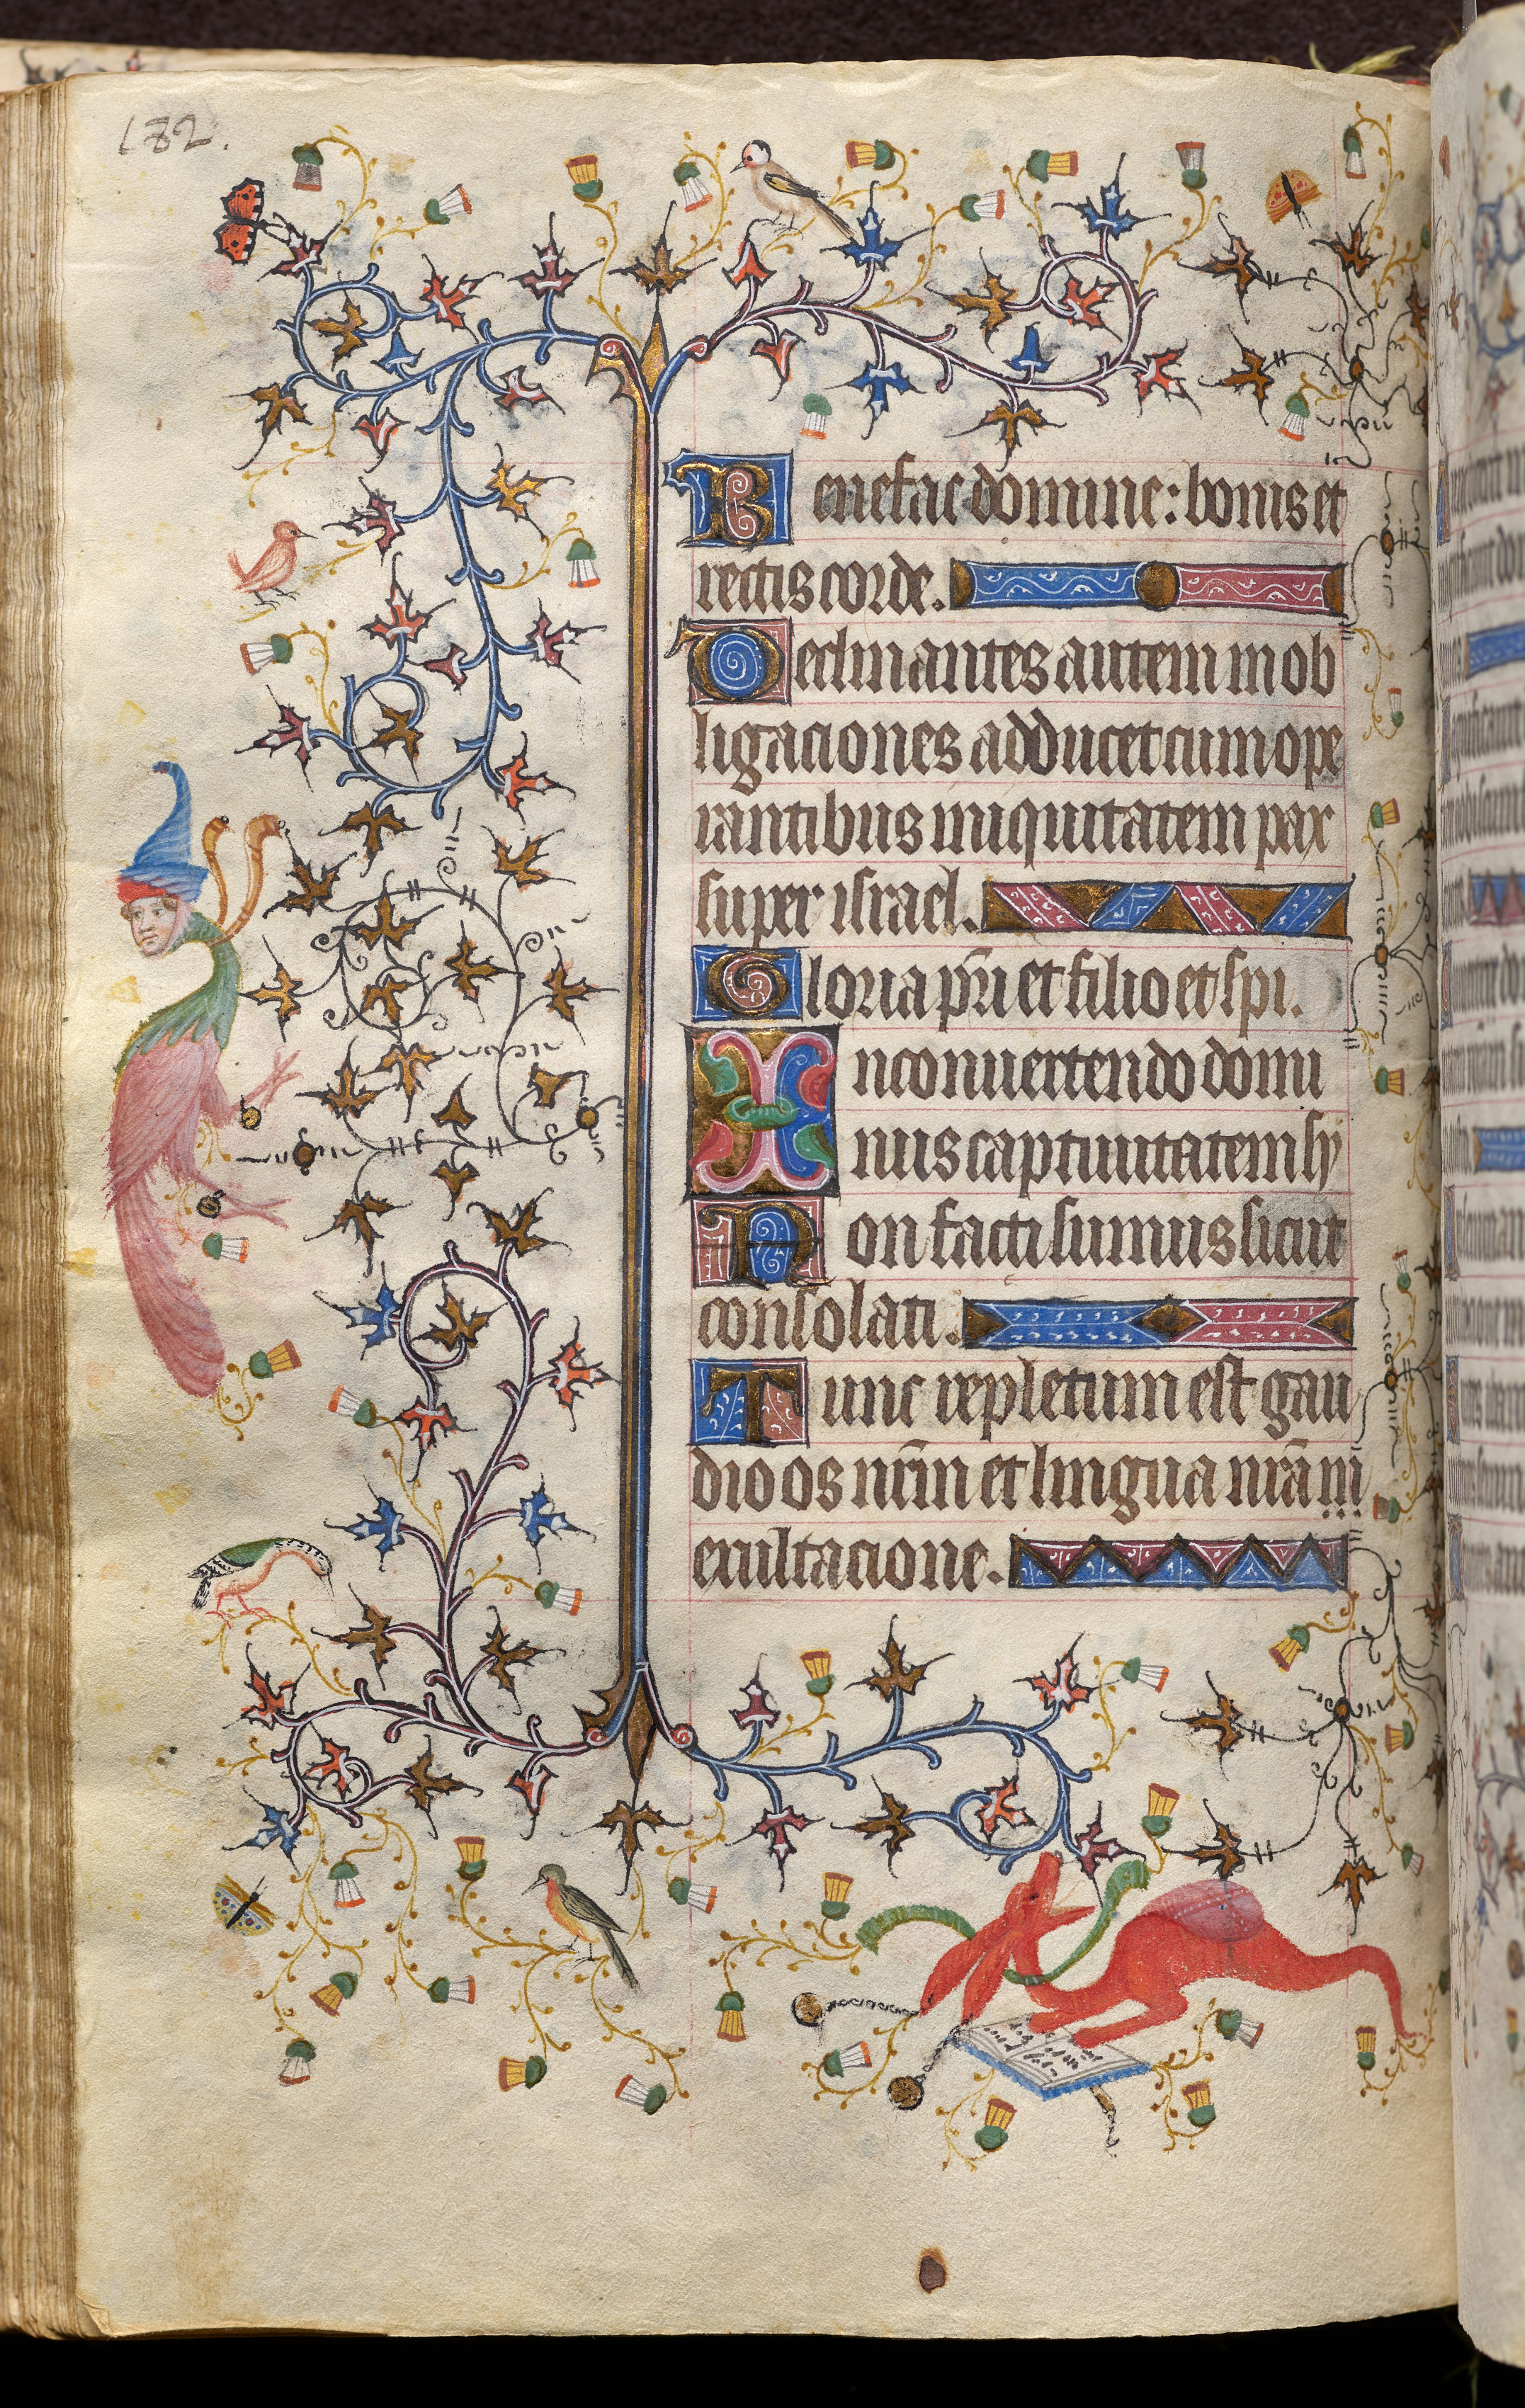 182.
Benefac domine: bonis et
rectis corde.
Declinantes autem in ob
ligaciones adducet cum ope
rantibus iniquitatem pax
super israel.
Gloria pr̄i et filio et spi.
In conuertendo domi
nus captiuitatem sy
Non facti sumus sicut
consolati.
Tunc repletum est gau
dio os nr̄m et lingua nr̄a in
exultacione.